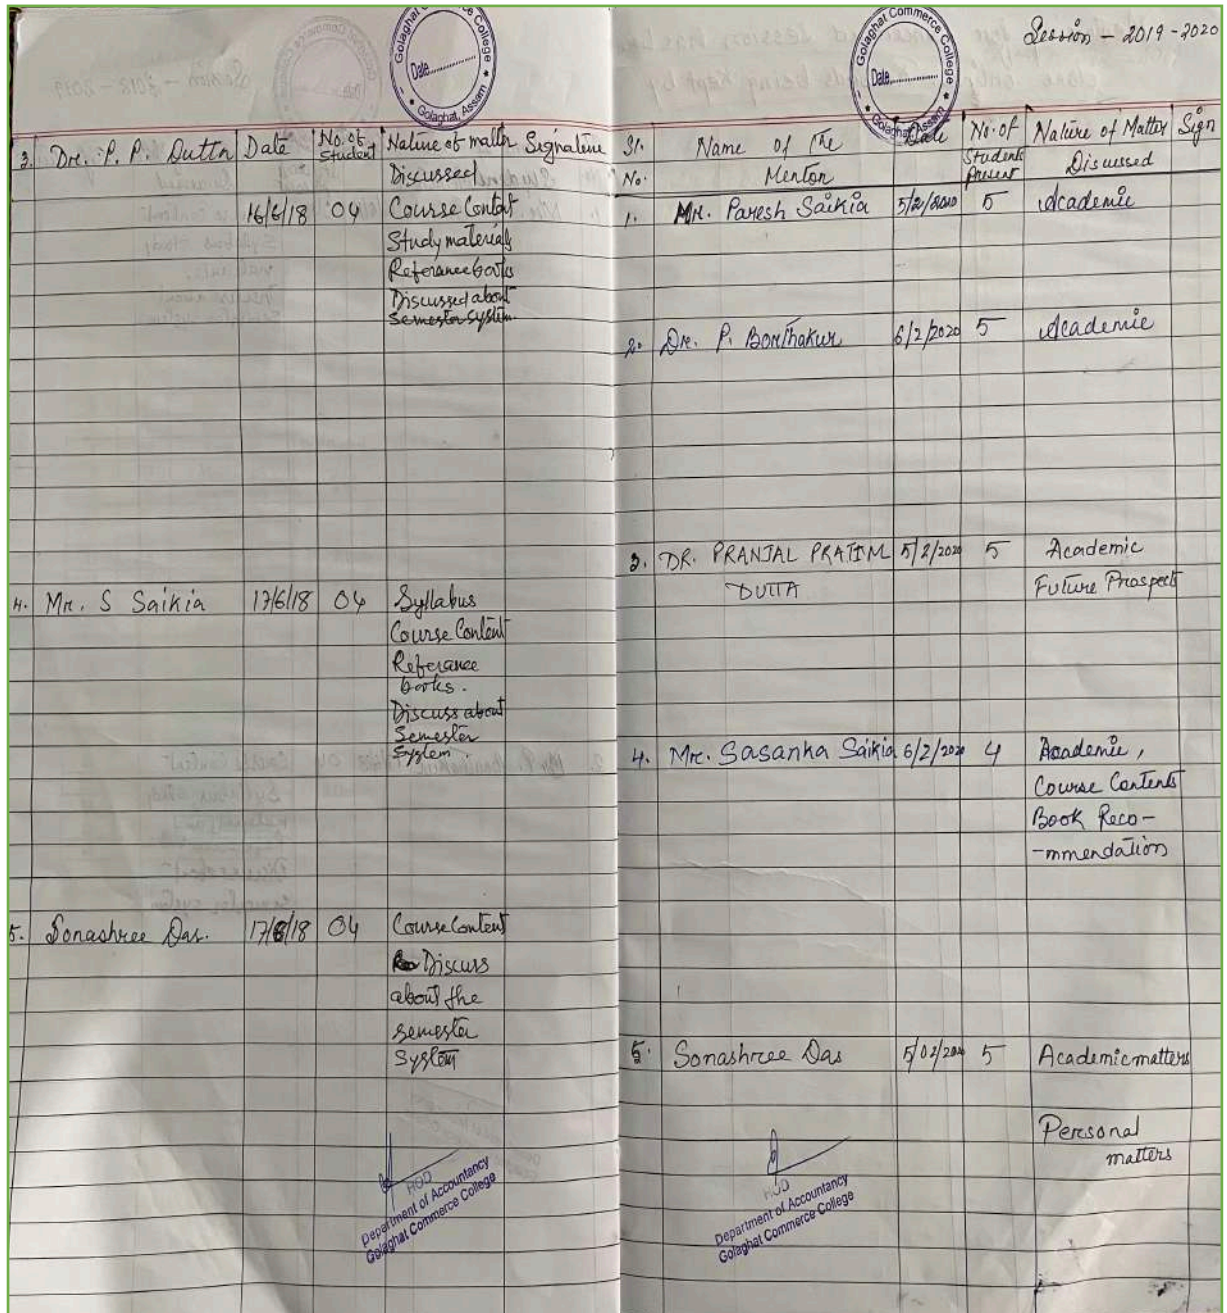 Golaghat Commerce College
Date
Golaghat, Assam
3. Dr. P. P. Dutta Date No. of Student Nature of matter Discussed Signature
16/6/18 04 Course Contet
Study materials
Referance books
Discussed about
Semester system.
4. Mr. S Saikia 17/6/18 04 Syllabus
Course Content
Referance
books.
Discuss about
Semester
System.
5. Sonashree Das. 17/6/18 04 Course Content
Discuss
about the
semester
System
HOD
Department of Accountancy
Golaghat Commerce College
Golaghat Commerce College
Date
Golaghat, Assam
Session - 2019-2020
Sl. No. Name of the Mentor Date No. of Students Present Nature of Matter Discussed Sign
1. Mr. Paresh Saikia 5/2/2020 5 Academic
2. Dr. P. Borthakur 6/2/2020 5 Academic
3. DR. PRANJAL PRATIM 5/2/2020 5 Academic
DUTTA Future Prospect
4. Mr. Sasanka Saikia 6/2/2020 4 Academic,
Course Contents
Book Reco-
-mmendation
5. Sonashree Das 5/02/2020 5 Academic matters
Personal
matters
HOD
Department of Accountancy
Golaghat Commerce College